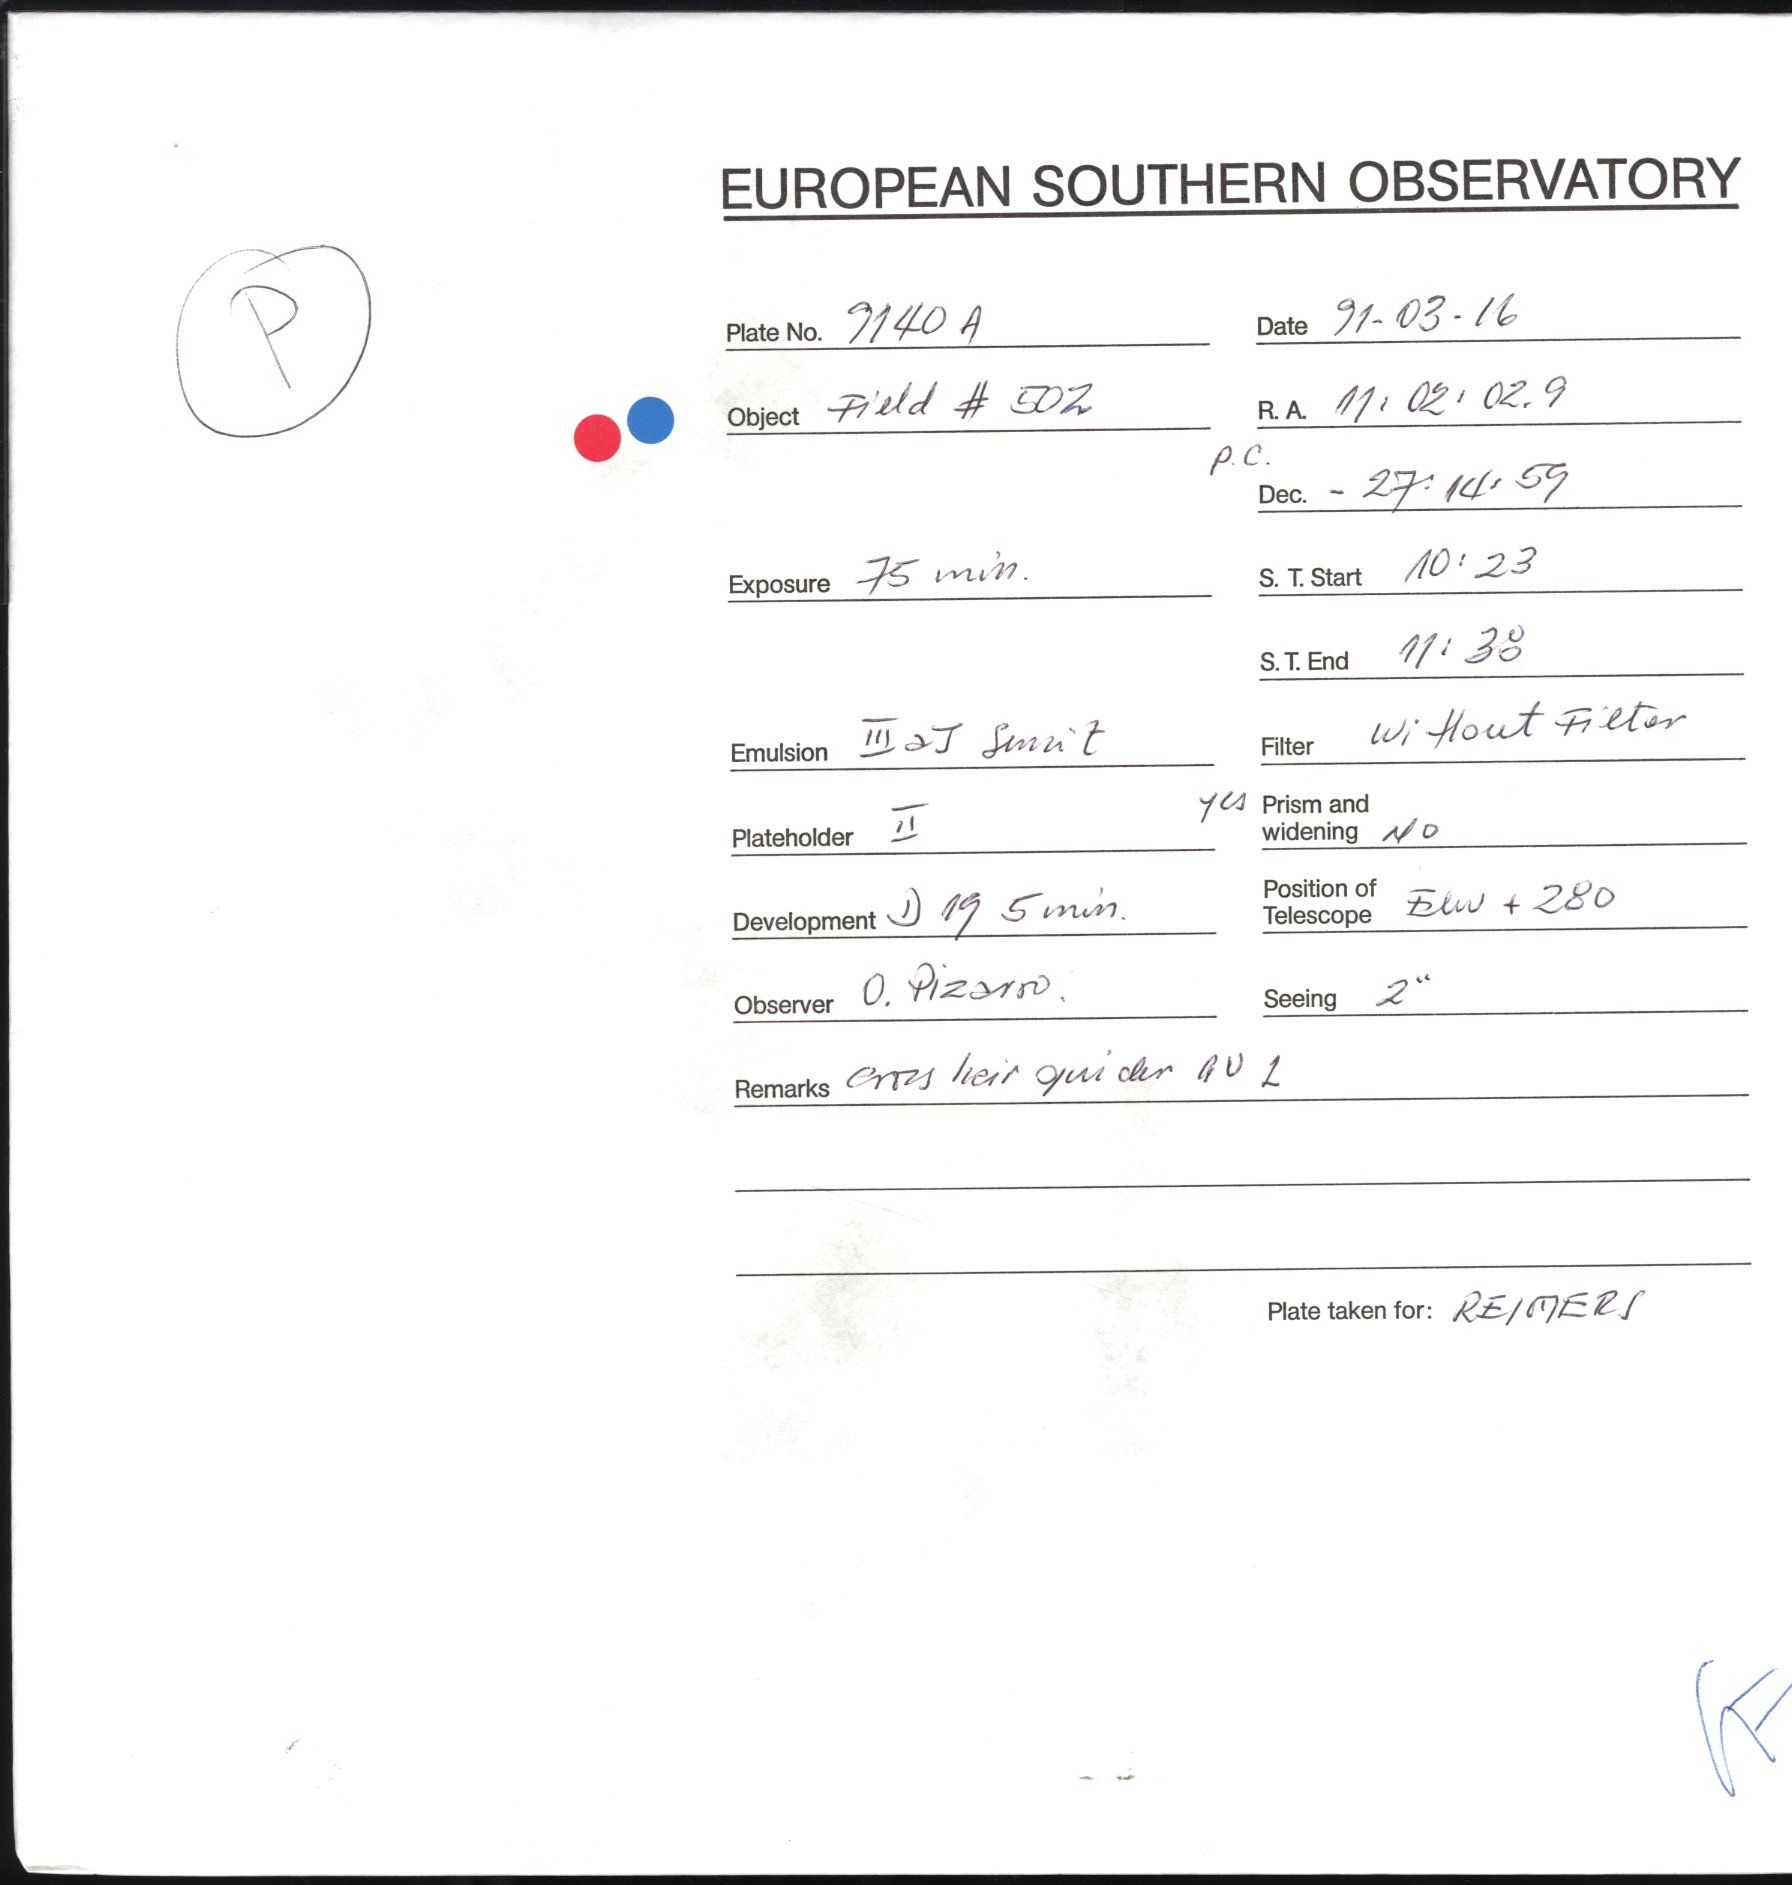 EUROPEAN SOUTHERN OBSERVATORY
P
Plate No. 9140 A Date 91-03-16
Object Field # 502 R. A. 11:02:02.9
P.C.
Dec. - 27:14:59
Exposure 75 min. S. T. Start 10:23
S. T. End 11:38
Emulsion III aJ Filter Without Filter
Plateholder II yes Prism and widening NO
Development D 19 5 min. Position of Telescope + 280
Observer O. Pizarro. Seeing 2"
Remarks cross heir guider
Plate taken for: REIMERS